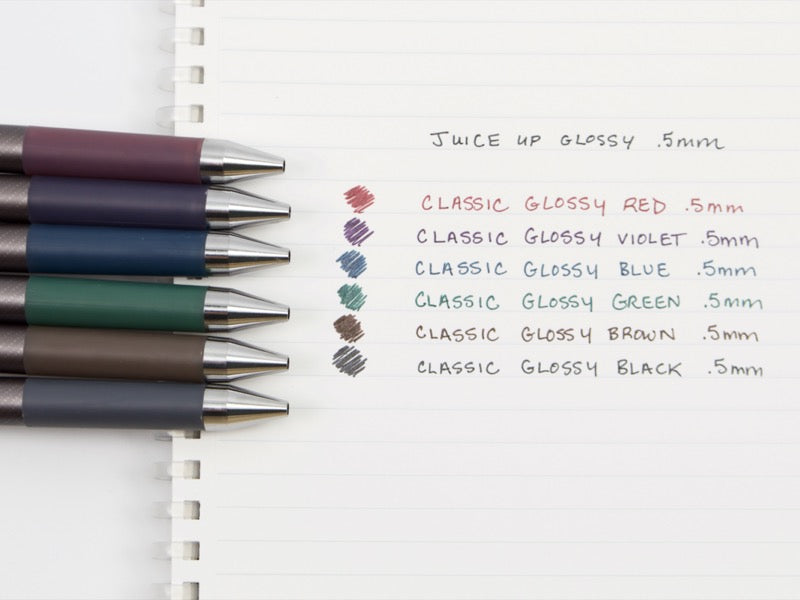 JUICE UP GLOSSY .5mm
CLASSIC GLOSSY RED .5mm
CLASSIC GLOSSY VIOLET .5mm
CLASSIC GLOSSY BLUE .5mm
CLASSIC GLOSSY GREEN .5mm
CLASSIC GLOSSY BROWN .5mm
CLASSIC GLOSSY BLACK .5mm